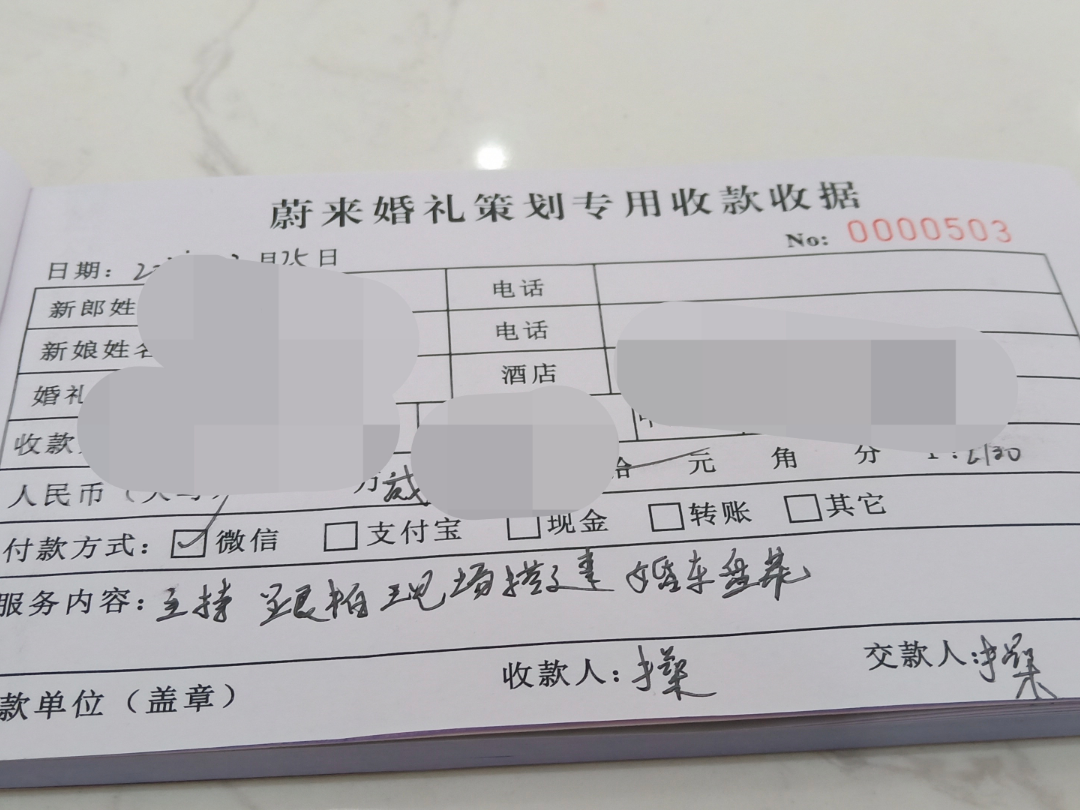 蔚来婚礼策划专用收款收据
No: 0000503
日期: 月25日
新郎姓 电话
新娘姓名 电话
婚礼 酒店
收款
人民币 万 贰 拾 元 角 分
付款方式: ☑微信 □支付宝 □现金 □转账 □其它
服务内容: 主持 跟拍 现场搭建 婚车
款单位（盖章） 收款人: 交款人: